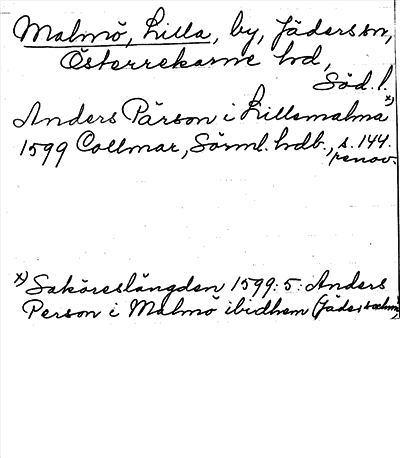 Malmö, Lilla, by, Jäders sn,
Österrekarne hd,
Söd. l.
Anders Pärson i Lillamalma x)
1599 Collmar, Sörml. hdb., s. 144.
renov.
x) Saköreslängden 1599: 5: Anders
Person i Malmö ibidhem (Jäder sochn)